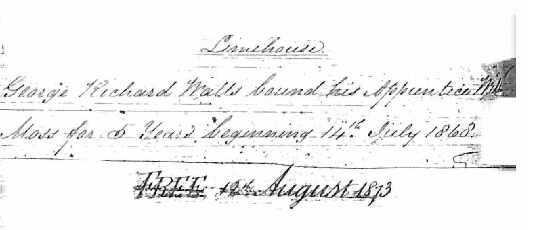 Limehouse.
George Richard Watts bound his Apprentice
Moss for 5 Years beginning 14th July 1868.
FREE 12th August 1873